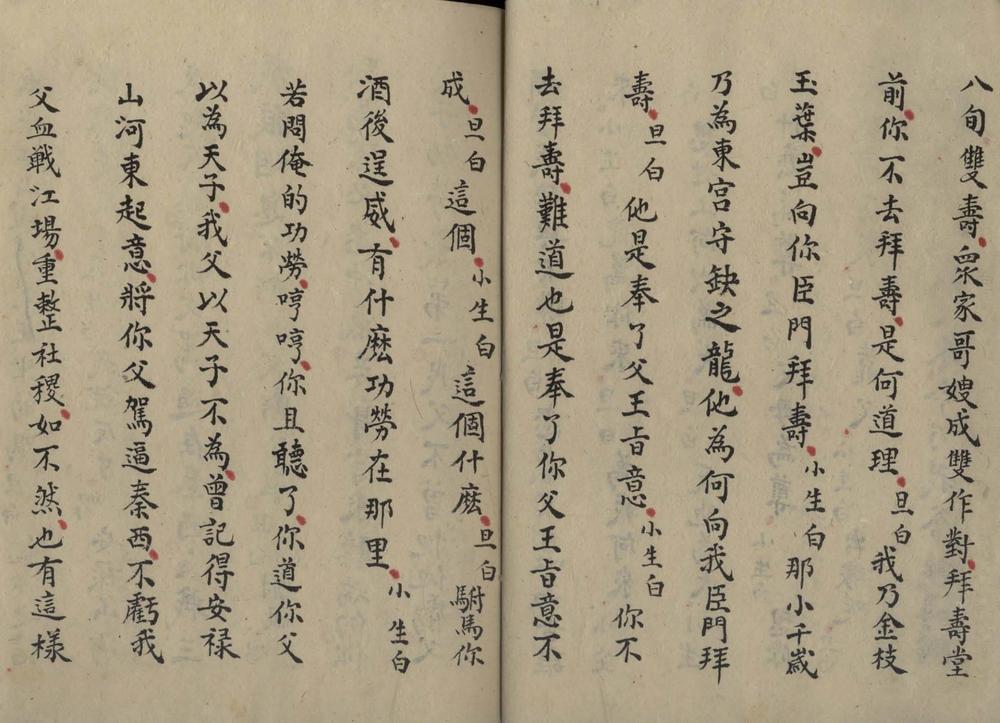 八旬雙壽眾家哥嫂成雙作對拜壽堂
前你不去拜壽是何道理旦白我乃金枝
玉葉豈向你臣門拜壽小生白那小千歲
乃為東宮守缺之龍他為何向我臣門拜
壽旦白他是奉了父王旨意小生白你不
去拜壽難道也是奉了你父王旨意不
成旦白這個小生白這個什麽旦白駙馬你
酒後逞威有什麽功勞在那里小生白
若問俺的功勞哼哼你且聽了你道你父
以為天子我父以天子不為曾記得安禄
山河東起意將你父駕逼秦西不虧我
父血戰江場重整社稷如不然也有這樣